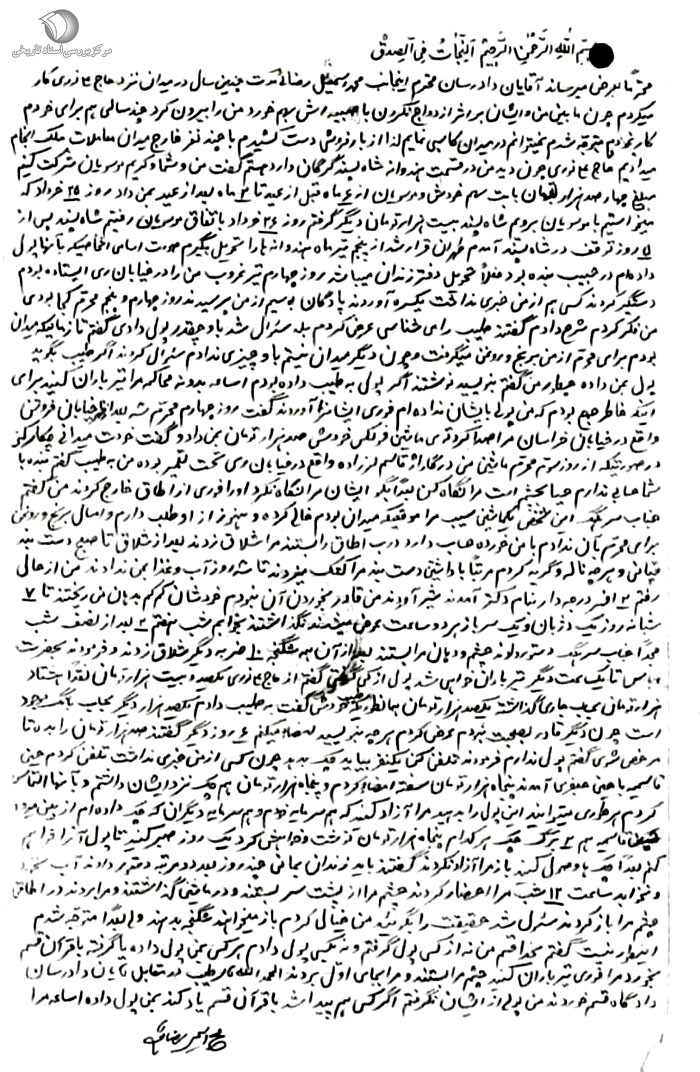 مرکز بررسی اسناد تاریخی
بسم الله الرحمن الرحیم النجات فی الصدق
محترماً بعرض میرساند آقایان دادرسان محترم اینجانب محمد اسمعیل رضائی مدت چندین سال در میدان نزد حاج نوری کار
میکردم چون ما بین من و ایشان بر اثر ازدواج نکردن با صبیه اش سهم خورد من را بیرون کرد چند سالی هم برای خودم
کار کردم متوجه شدم نمیتوانم در میدان کاسبی نمایم لذا از بارفروشی دست کشیدم با چند نفر خارج میدان معاملات ملک انجام
میدادیم حاج نوری چون دید من در قسمت هندوانه شاه پسند گرگان وارد هستم گفت من و شما و کریم موسویان شرکت کنیم
مبلغ چهار صد هزار تومان بابت سهم خودش و موسویان از ماه قبل از عید تا ماه بعد از عید بمن داد روز ۲۵ خرداد که
میخواستیم با موسویان برویم شاه پسند بیست هزار تومان دیگر گرفتم روز ۲۶ خرداد با تفاق موسویان رفتیم شاه پسند پس از
روز توقف در شاه پسند آمدم طهران قرار شد از پنجم تیر ماه هندوانه ها را تحویل بگیرم صورت اسامی اشخاصیکه بآنها پول
داده ام در جیب بنده بود فعلاً تحویل دفتر زندان میباشد روز چهارم تیر غروب من را در خیابان ری ایستاده بودم
دستگیر کردند کسی هم از من خبری نداشت یکسره آوردند پادگان بی سیم از من پرسیدند روز چهارم و پنجم محرم کجا بودی
من فکر کردم شرح دادم گفتند طیب را می شناسی عرض کردم بله سئوال شد باو چقدر پول دادی گفتم تا زمانیکه میدان
بودم برای محرم از من برنج و روغن میگرفت و چون دیگر میدان نیستم باو چیزی ندادم سئوال کردند اگر طیب بگوید
پول بمن داده چطور من گفتم بنویسید نوشتند اگر پولی به طیب داده بودم اسماعیل بدون محاکمه مرا تیر باران کنید برای
اینکه خاطر جمع بودم که من پولی بایشان نداده ام فوری ایشان را آوردند گفت روز چهارم محرم
واقع در خیابان خراسان مرا صدا کرد توی ماشین فولکس خودش صد هزار تومان بمن داد و گفت خودت میدانی چکار کنی
در صورتیکه از روز سوم محرم ماشین من در گاراژ قاسم لرزاده واقع در خیابان ری تحت تعمیر بوده من به طیب گفتم بنده با
شما حسابی ندارم مرا نگاه کن بعداً بگو ایشان مرا نگاه نکرد او را فوری از اطاق خارج کردند من گفتم
جناب سرهنگ این شخص یک ماشین سیب مرا موقعیکه میدان بودم خالی کرده و هنوز از او طلب دارم و امسال برنج و روغن
برای محرم بآن ندادم با من خورده حساب دارد درب اطاق را بستند مرا شلاق زدند بعد از شلاق تا صبح دست بند
قپانی و هرچه ناله و گریه کردم مرتباً با داشتن دست بند مرا کتک میزدند تا سه روز آب و غذا بمن ندادند من از حال
رفتم ۲ افسر درجه دار بنام دکتر آمدند شیر آوردند من قادر بخوردن آن نبودم خودشان کم کم بدهان من ریختند تا ۷
شبانه روز یک دژبان و یک سرباز هر دو ساعت عوض میشدند نگذاشتند بخوابم شب هفتم ۲ بعد از نصف شب
مجدداً جناب سرهنگ دستور داد چشم و دهان مرا بستند بعد از آن همه شکنجه ۱۰ ضربه دیگر شلاق زدند و فرمودند بحضرت
عباس تا یک ساعت دیگر تیر باران خواهی شد پول از کی گرفتی گفتم از حاج نوری یکصد و بیست هزار تومان نقداً هشتاد
هزار تومان بحساب جاری گذاشته یکصد هزار تومان همانطوریکه طیب خودش گفت به طیب دادم یکصد هزار دیگر بحساب بانک موجود
است چون دیگر قادر بصحبت نبودم عرض کردم هر چه بنویسید امضاء میکنم ۶ روز دیگر گفتند صد هزار تومان را بده تا
مرخص شوی گفتم پول ندارم فرمودند تلفن کن یکنفر بیاید چک بدهد چون کسی از من خبری نداشت تلفن کردم حسین
قاسمیه با حسین جعفری آمدند پنجاه هزار تومان سفته امضاء کردم و پنجاه هزار تومان هم چک نزد ایشان داشتم و بآنها التماس
کردم هر طوری میتوانید این پول را بدهید مرا آزاد کنند که هم سرمایه خودم و هم سرمایه دیگران که چک داده ام از بین میرود
قاسمیه هم ۲ برگ چک هر کدام پنجاه هزار تومان نوشت و خواهش کرد یک روز صبر کنید تا پول آنرا فراهم
کنم بعداً چک را وصول کنید باز مرا آزاد نکردند گفتند باید زندان بمانی چند روز بعد دو مرتبه دستور دادند آب نخورد
و نخوابد ساعت ۱۲ شب مرا احضار کردند چشم مرا از پشت سر بستند و در ماشین گذاشتند و مرا بردند در اطاقی
چشم مرا باز کردند سئوال شد حقیقت را بگوئید من خیال کردم باز میخواهند شکنجه بدهند ولی بعداً متوجه شدم
اینطور نیست گفتم بخدا قسم من نه از کسی پول گرفتم و نه بکسی پول دادم هر کسی بمن پول داده یا گرفته با قرآن قسم
بخورد مرا فوری تیر باران کنید چشم مرا بستند و مرا بجای اول بردند الحمد الله طیب در مقابل آقایان دادرسان
دادگاه قسم خوردند من پولی از ایشان نگرفتم اگر کسی هم پیدا شد با قرآن قسم یاد کند بمن پول داده اسماعیل مرا